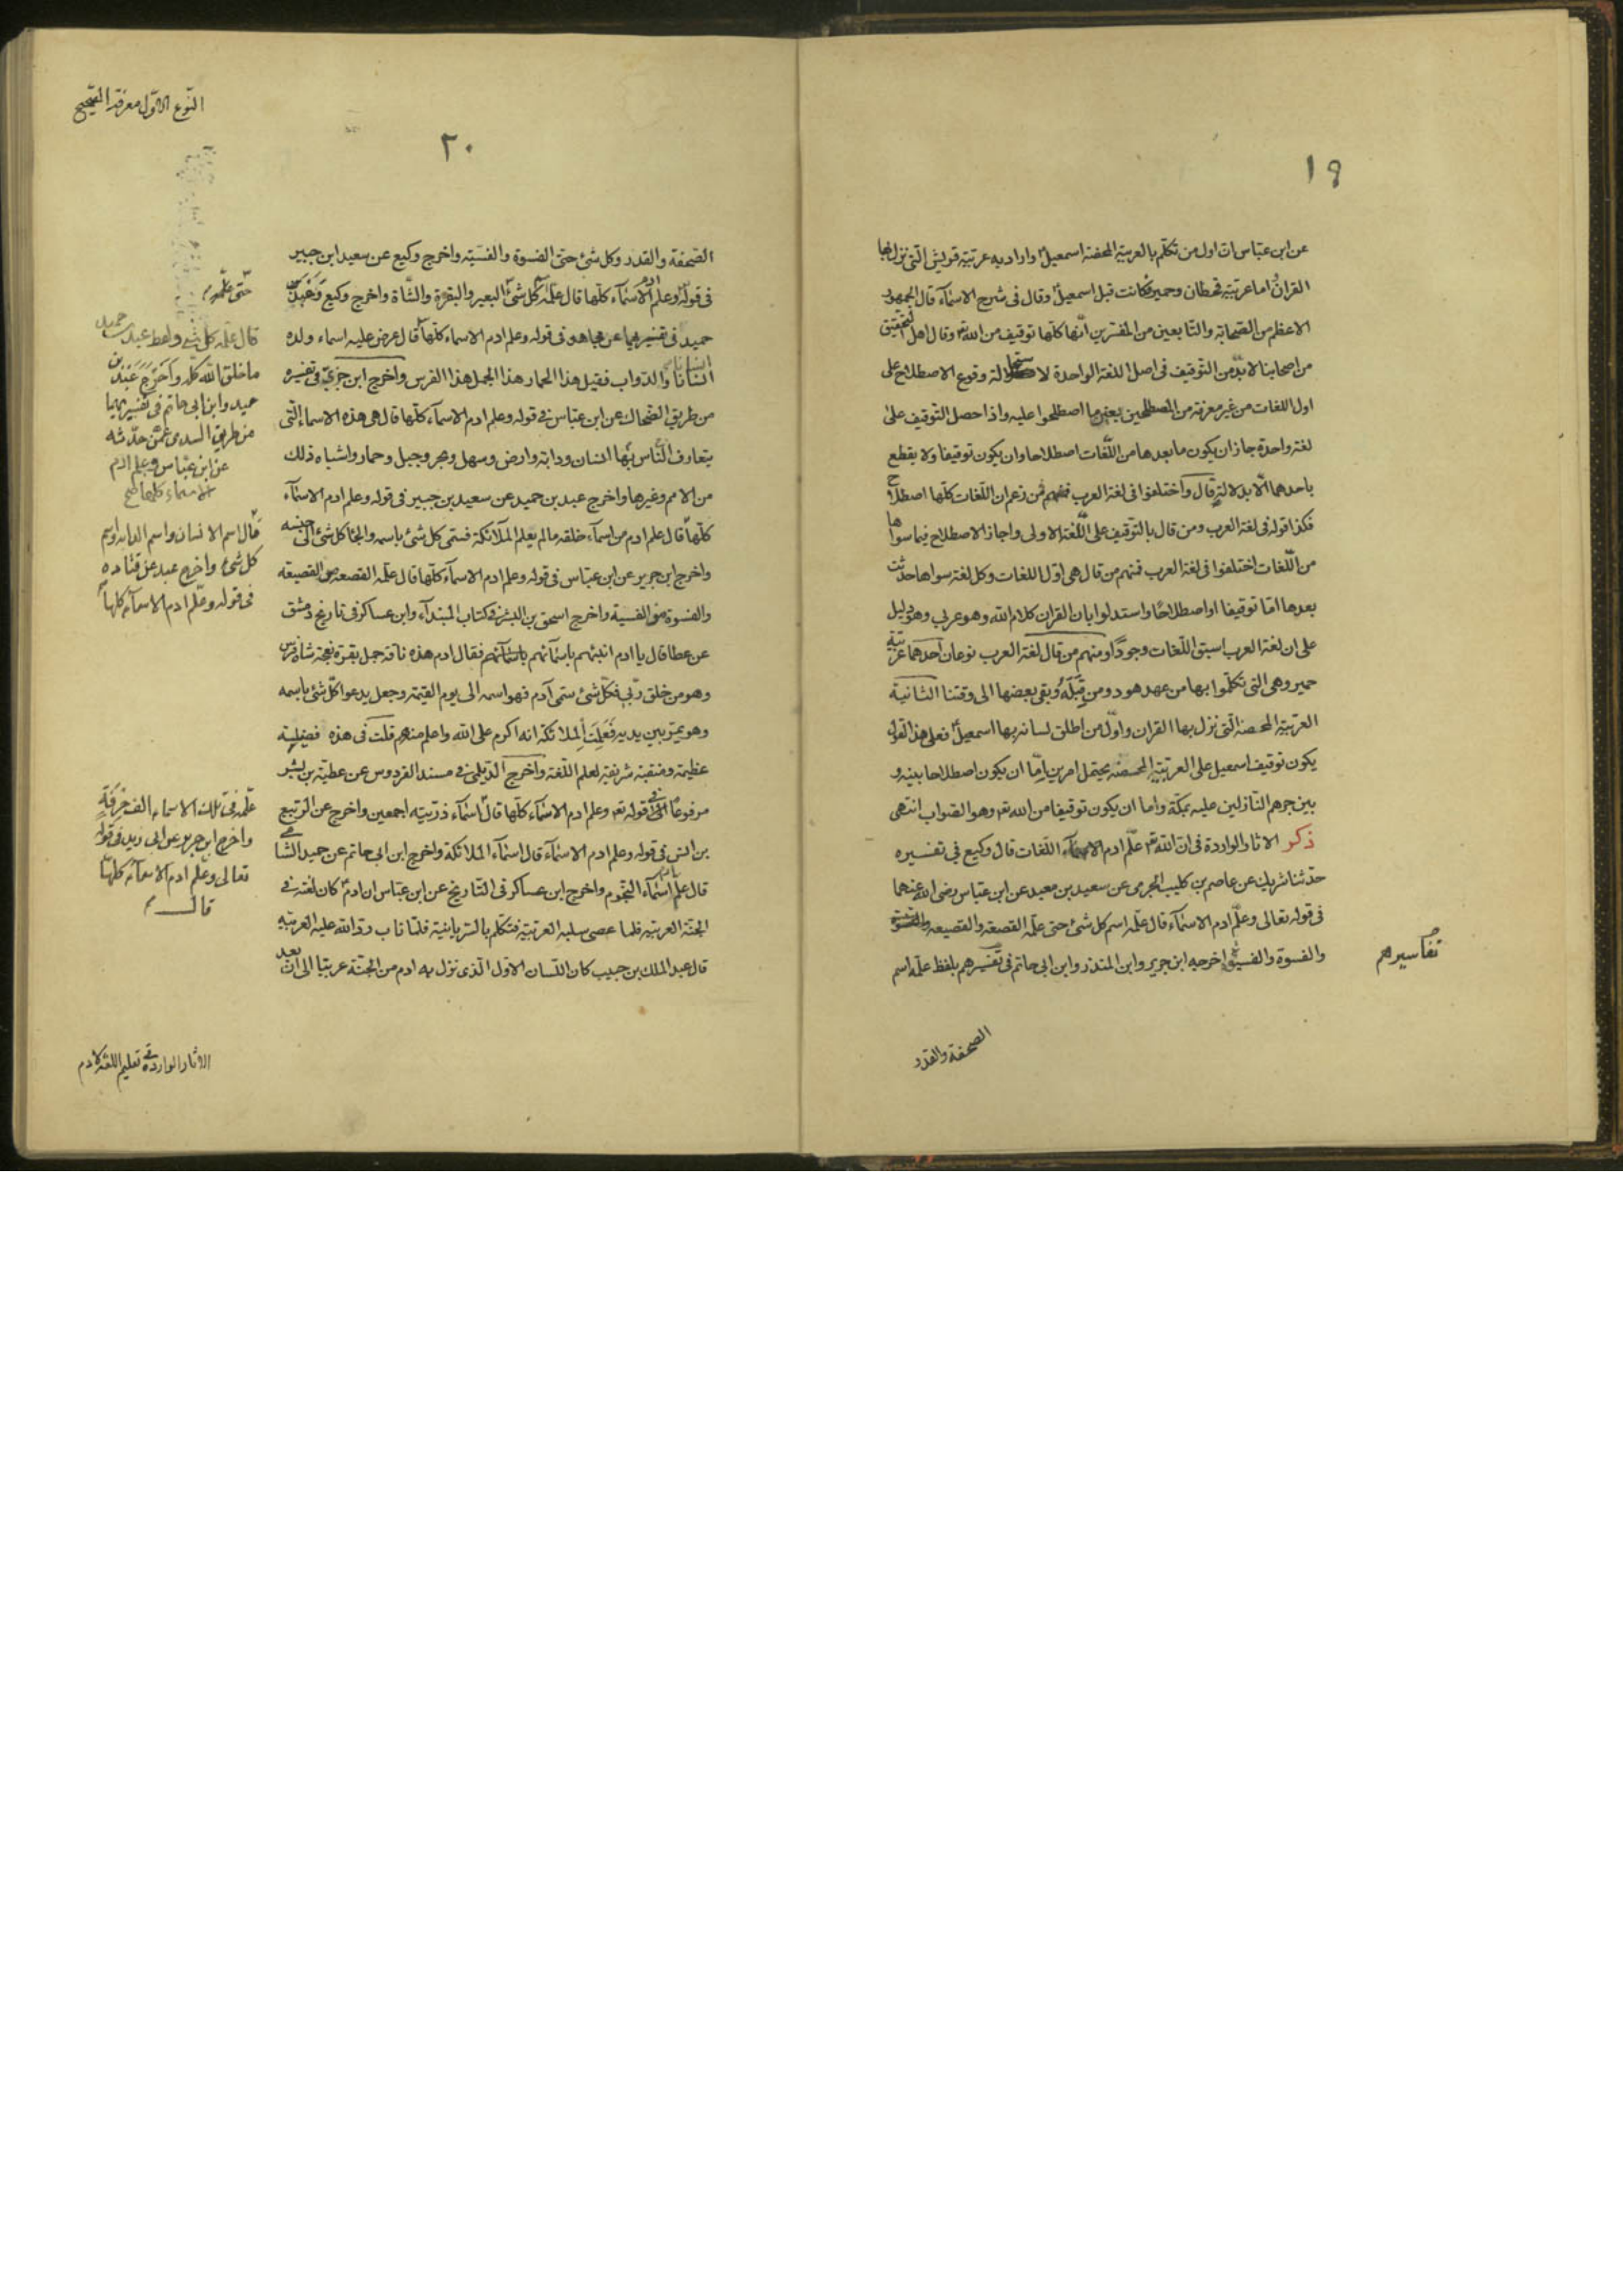 ١٩
عن ابن عباس ان اول من تكلم بالعربية المحضة اسمعيل واراد به عربية قريش التى نزل بها
القران اما عربية قحطان وحمير فكانت قبل اسمعيل وقال فى شرح الاسماء قال الجمهور
الاعظم من الصحابة والتابعين من المفسرين انها كلها توقيف من الله وقال اهل التحقيق
من اصحابنا لا بد من التوقيف فى اصل اللغة الواحدة لاستحالة وقوع الاصطلاح على
اول اللغات من غير معرفة من المصطلحين بعين ما اصطلحوا عليه واذا حصل التوقيف على
لغة واحدة جاز ان يكون ما بعدها من اللغات اصطلاحا وان يكون توقيفا ولا يقطع
باحدهما الا بدلالة قال واختلفوا فى لغة العرب فمنهم من زعم ان اللغات كلها اصطلاح
فكذا قوله فى لغة العرب ومن قال بالتوقيف على اللغة الاولى واجاز الاصطلاح فيما سواها
من اللغات اختلفوا فى لغة العرب فمنهم من قال هى اول اللغات وكل لغة سواها حدثت
بعدها اما توقيفا او اصطلاحا واستدلوا بان القران كلام الله وهو عربى وهو دليل
على ان لغة العرب اسبق اللغات وجودا ومنهم من قال لغة العرب نوعان احدهما عربية
حمير وهى التى تكلموا بها من عهد هود ومن قبله وبقى بعضها الى وقتنا الثانية
العربية المحضة التى نزل بها القران واول من اطلق لسانه بها اسمعيل فعلى هذا القول
يكون توقيف اسمعيل على العربية المحضة يحتمل امرين اما ان يكون اصطلاحا بينه و
بين جرهم النازلين عليه بمكة واما ان يكون توقيفا من الله تع وهو الصواب انتهى
ذكر الاثار الواردة فى ان الله تع علم ادم اللغات قال وكيع فى تفسيره
حدثنا شريك عن عاصم بن كليب الجرمى عن سعيد بن معيد عن ابن عباس رضى الله عنهما
فى قوله تعالى وعلم ادم الاسماء قال علمه اسم كل شئ حتى علمه القصعة والقصيعة
والفسوة والفسية اخرجه ابن جرير وابن المنذر وابن ابى حاتم فى تفسيرهم بلفظ علمه اسم
تفاسيرهم
الصحفة والقدر
النوع الاول معرفة الصحيح
٢٠
الصحفة والقدر وكل شئ حتى الفسوة والفسية واخرج وكيع عن سعيد ابن جبير
فى قوله وعلم ادم الاسماء كلها قال علمه كل شئ البعير والبقرة والشاة واخرج وكيع وعبد بن
حميد فى تفسيرهما عن مجاهد فى قوله وعلم ادم الاسماء كلها قال عرض عليه اسماء ولده
انسانا انسانا والدواب فقيل هذا الحمار هذا الجمل هذا الفرس واخرج ابن جزى فى تفسيره
من طريق الضحاك عن ابن عباس فى قوله وعلم ادم الاسماء كلها قال هى هذه الاسماء التى
يتعارف الناس بها انسان ودابة وارض وسهل وبحر وجبل وحمار واشباه ذلك
من الامم وغيرها واخرج عبد بن حميد عن سعيد بن جبير فى قوله وعلم ادم الاسماء
كلها قال علم ادم من اسماء خلقه مالم يعلم الملائكة فسمى كل شئ باسمه والجئا كل شئ الى جنسه
واخرج ابن جرير عن ابن عباس فى قوله وعلم ادم الاسماء كلها قال علمه القصعة من القصيعة
والفسوة من الفسية واخرج اسحق بن البشر فى كتاب المبتدآء وابن عساكر فى تاريخ دمشق
عن عطا قال يا ادم انبئهم باسمائهم فقال ادم هذه ناقة جمل بقرة نعجة شاة فرس
وهو من خلق ربى فكل شئ سمى آدم فهو اسمه الى يوم القيمة وجعل يدعو كل شئ باسمه
وهو يمر بين يديه فعلمت الملائكة انه اكرم على الله واعلم منهم قلت فى هذه فضيلة
عظيمة ومنقبة شريفة لعلم اللغة واخرج الديلمى فى مسند الفردوس عن عطية بن بشر
مرفوعا فى قوله تع وعلم ادم الاسماء كلها قال اسماء ذريته اجمعين واخرج عن الربيع
بن انس فى قوله وعلم ادم الاسماء قال اسماء الملائكة واخرج ابن ابى حاتم عن حميد الشامى
قال علم ادم اسماء النجوم واخرج ابن عساكر فى التاريخ عن ابن عباس ان ادم كان لغته فى
الجنة العربية فلما عصى سلبه العربية فتكلم بالسريانية فلما تاب رد الله عليه العربية
قال عبد الملك بن حبيب كان اللسان الاول الذى نزل به ادم من الجنة عربيا الى ان بعد
قال علمه كل شئ ولفظ عبد بن حميد
ما خلق الله كله واخرج عبد بن
حميد وابن ابى حاتم فى تفسيريهما
من طريق السدى عمن حدثه
عن ابن عباس وعلم ادم
الاسماء كلها
قال اسم الانسان واسم الدابة واسم
كل شئ واخرج عبد عن قتاده
فى قوله وعلم ادم الاسماء كلها
علمه فى تلك الاسماء الف حرفة
واخرج ابن جرير عن ابى زيد فى قوله
تعالى وعلم ادم الاسماء كلها
قال
الاثار الواردة فى تعليم اللغة لادم